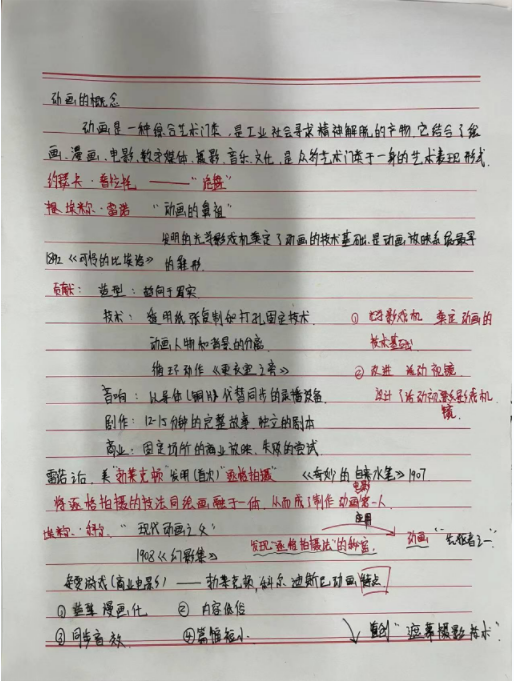 动画的概念
动画是一种综合艺术门类,是工业社会寻求精神解脱的产物,它结合了绘
画、漫画、电影、数字媒体、摄影、音乐、文化,是众多艺术门类于一身的艺术表现形式.
约瑟夫·普拉托 —— "
埃米尔·雷诺 "动画的鼻祖"
发明的光学影戏机奠定了动画的技术基础,是动画放映系统最早
1892 《可怜的比埃洛》 的雏形.
贡献: 造型: 趋向于写实
技术: 纸张复制和打孔固定技术. ① 光学影戏机 奠定动画的
动画人物和背景的分离. 技术基础.
循环动作《更衣室之旁》 ② 改进 活动视镜.
音响: 代替同步的录播设备. 设计了活动视镜影戏机
剧作: 12-15分钟的完整故事,独立的剧本 镜.
商业: 固定场所的商业放映,失败的尝试
雷诺之后,美"勃莱克顿"发明(首次)"逐格拍摄" 《奇妙的自来水笔》1907
电影
将逐格拍摄的技法同绘画融于一体,从而成了制作动画第一人
应用
埃米尔·科尔 "现代动画之父" 发现"逐格拍摄法"的秘密. 动画"先驱者之一"
1908《幻影集》
(商业电影) —— 勃莱克顿,科尔 迪斯尼动画 特点
① 漫画化 ② 内容低俗
③ 同步音效 ④ 篇幅短小. 首创"遮幕摄影技术"